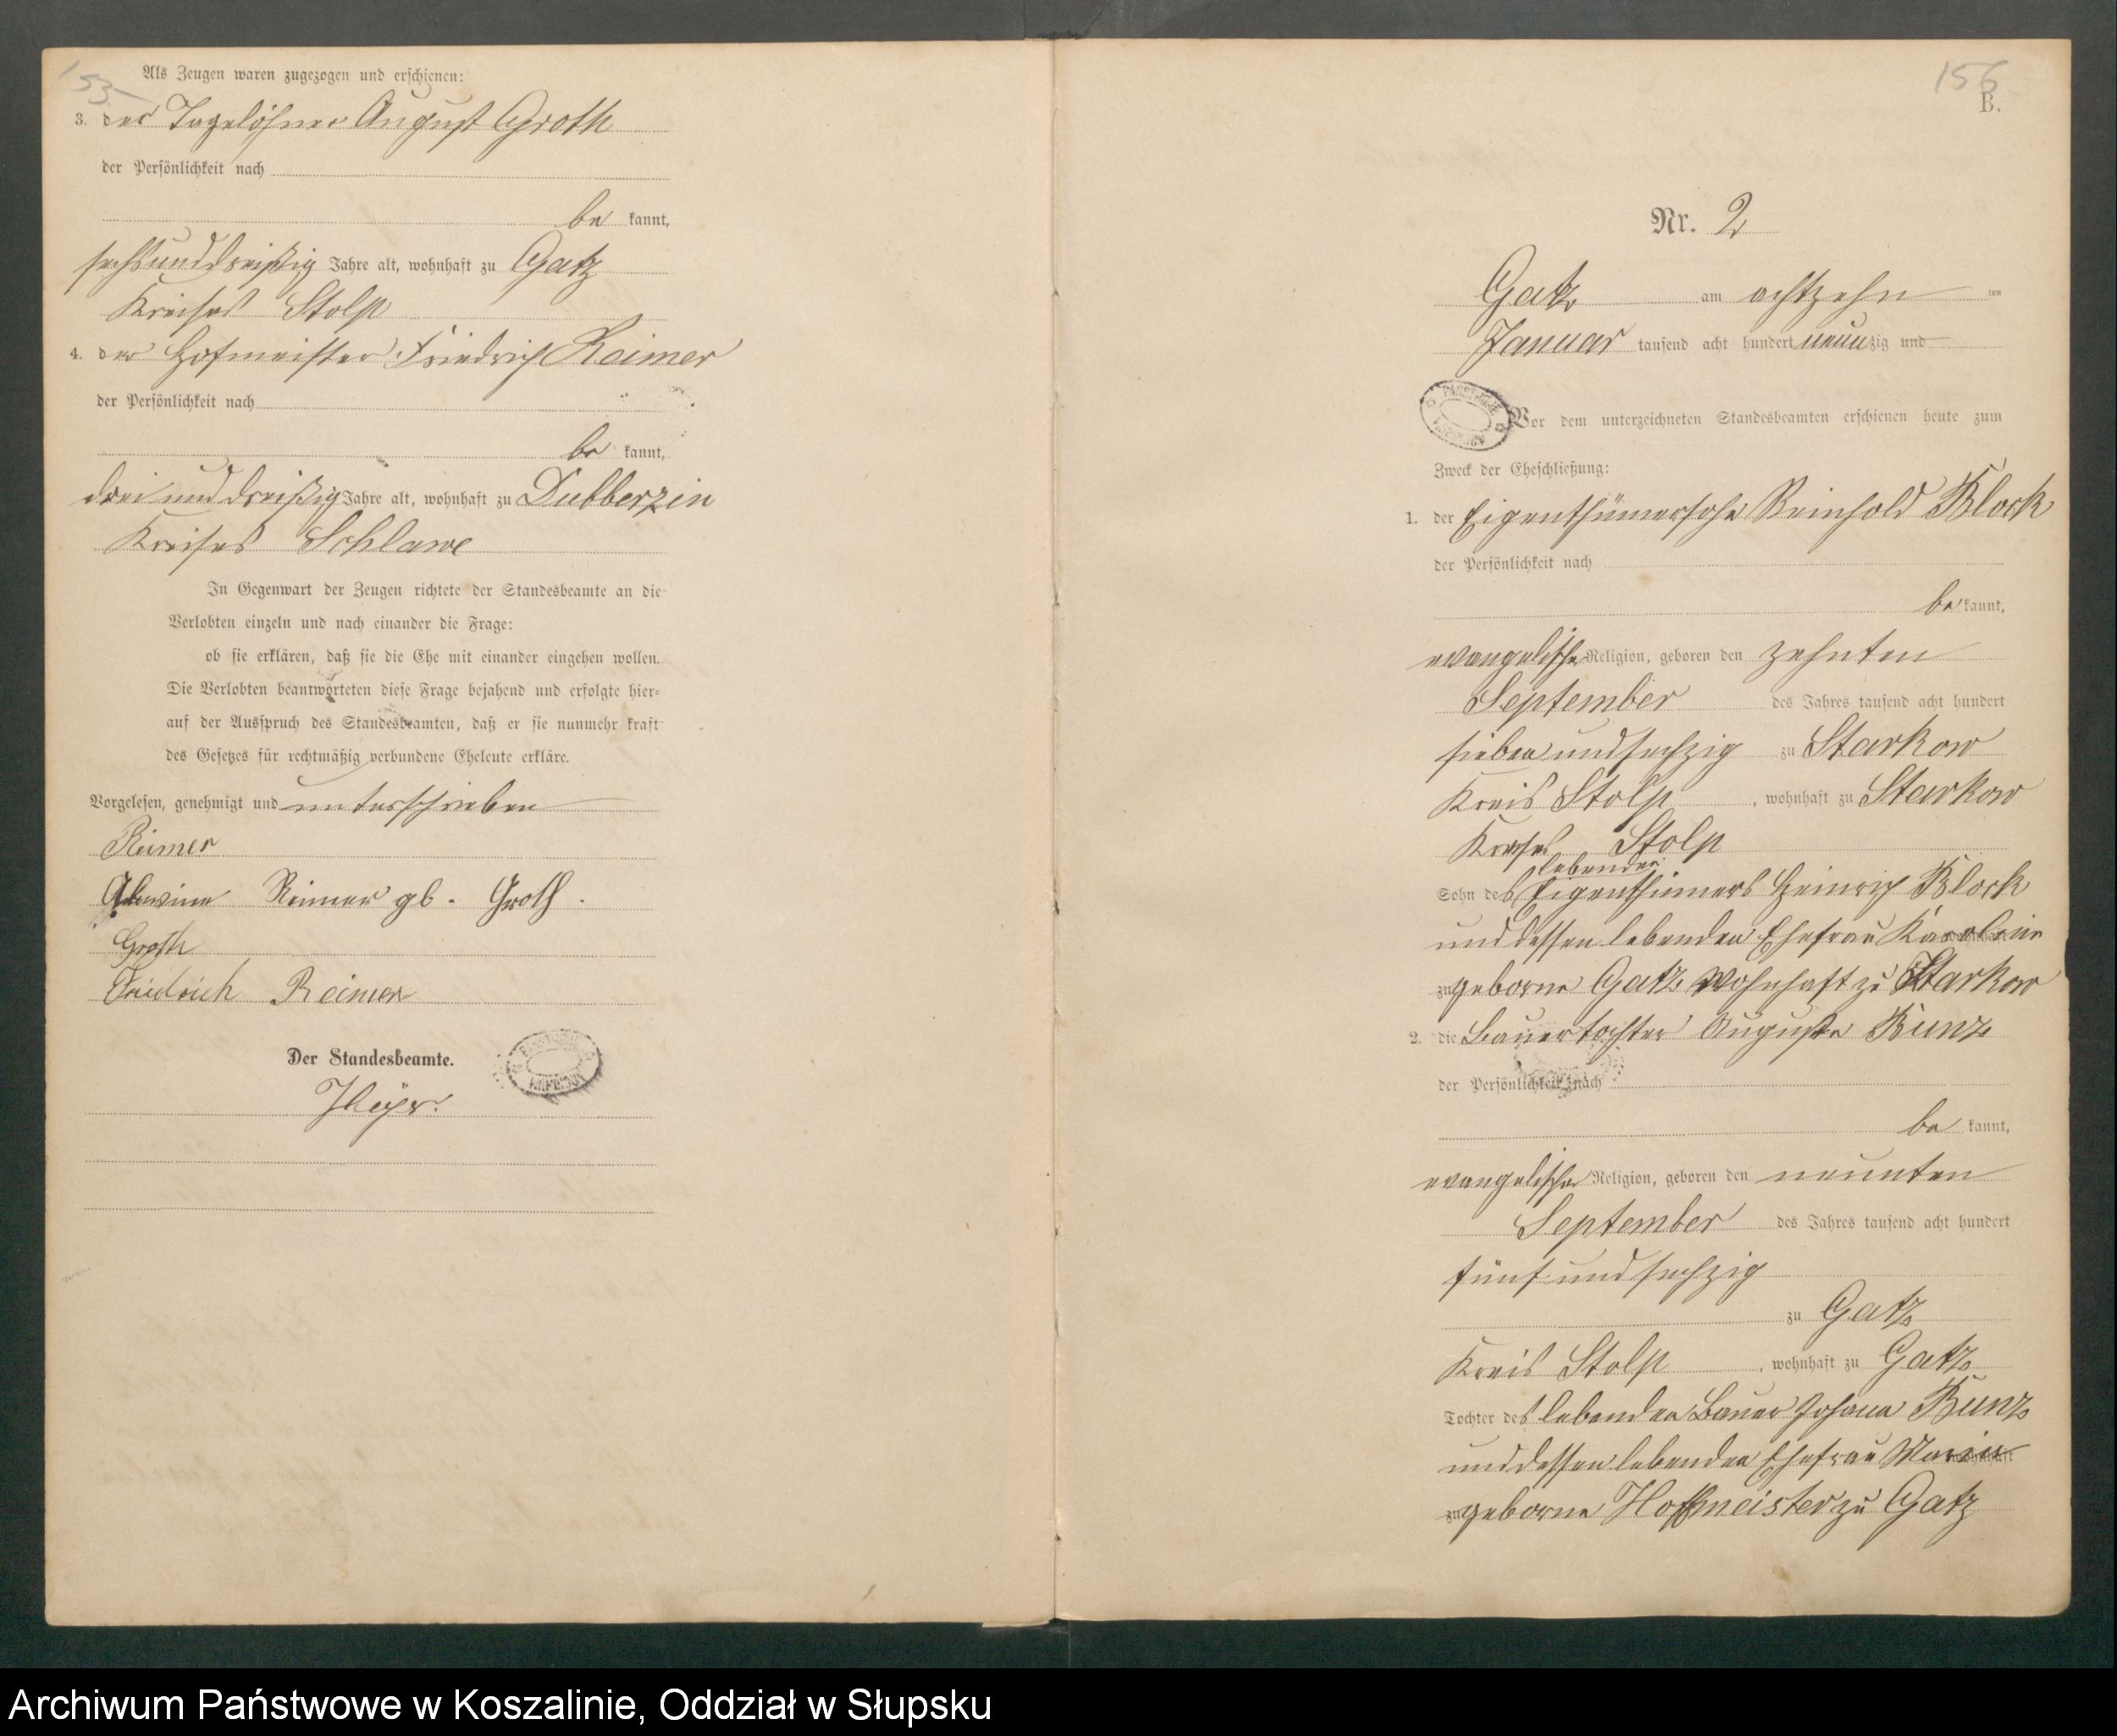 153
Als Zeugen waren zugezogen und erschienen:
3. der Tagelöhner August Groth
der Persönlichkeit nach
be kannt,
sechsunddreißig Jahre alt, wohnhaft zu Gatz
Kreises Stolp
4. der Hofmeister Friedrich Reimer
der Persönlichkeit nach
be kannt,
drei und dreißig Jahre alt, wohnhaft zu Dubberzin
Kreises Schlawe
In Gegenwart der Zeugen richtete der Standesbeamte an die
Verlobten einzeln und nach einander die Frage:
ob sie erklären, daß sie die Ehe mit einander eingehen wollen.
Die Verlobten beantworteten diese Frage bejahend und erfolgte hier-
auf der Ausspruch des Standesbeamten, daß er sie nunmehr kraft
des Gesetzes für rechtmäßig verbundene Eheleute erkläre.
Vorgelesen, genehmigt und unterschrieben
Reimer
Alwine Reimer gb. Groth.
Groth
Friedrich Reimer
Der Standesbeamte.
156
B.
Nr. 2
Gatz am achtzehn ten
Januar tausend acht hundert neunzig und
Vor dem unterzeichneten Standesbeamten erschienen heute zum
Zweck der Eheschließung:
1. der Eigenthümersohn Reinhold Block
der Persönlichkeit nach
be kannt,
evangelischer Religion, geboren den zehnten
September des Jahres tausend acht hundert
sieben und sechzig zu Starkow
Kreis Stolp, wohnhaft zu Starkow
Kreises Stolp
lebenden
Sohn des Eigenthümers Heinrich Block
und dessen lebenden Ehefrau Karoline
zu geborne Gatz wohnhaft zu Starkow
2. die Bauertochter Auguste Kunz
der Persönlichkeit nach
be kannt,
evangelischer Religion, geboren den neunten
September des Jahres tausend acht hundert
fünf und sechzig
zu Gatz
Kreis Stolp, wohnhaft zu Gatz
Tochter des lebenden Bauer Johann Kunz
und dessen lebenden Ehefrau Marie
zu geborne Hoffmeister zu Gatz
Archiwum Państwowe w Koszalinie, Oddział w Słupsku